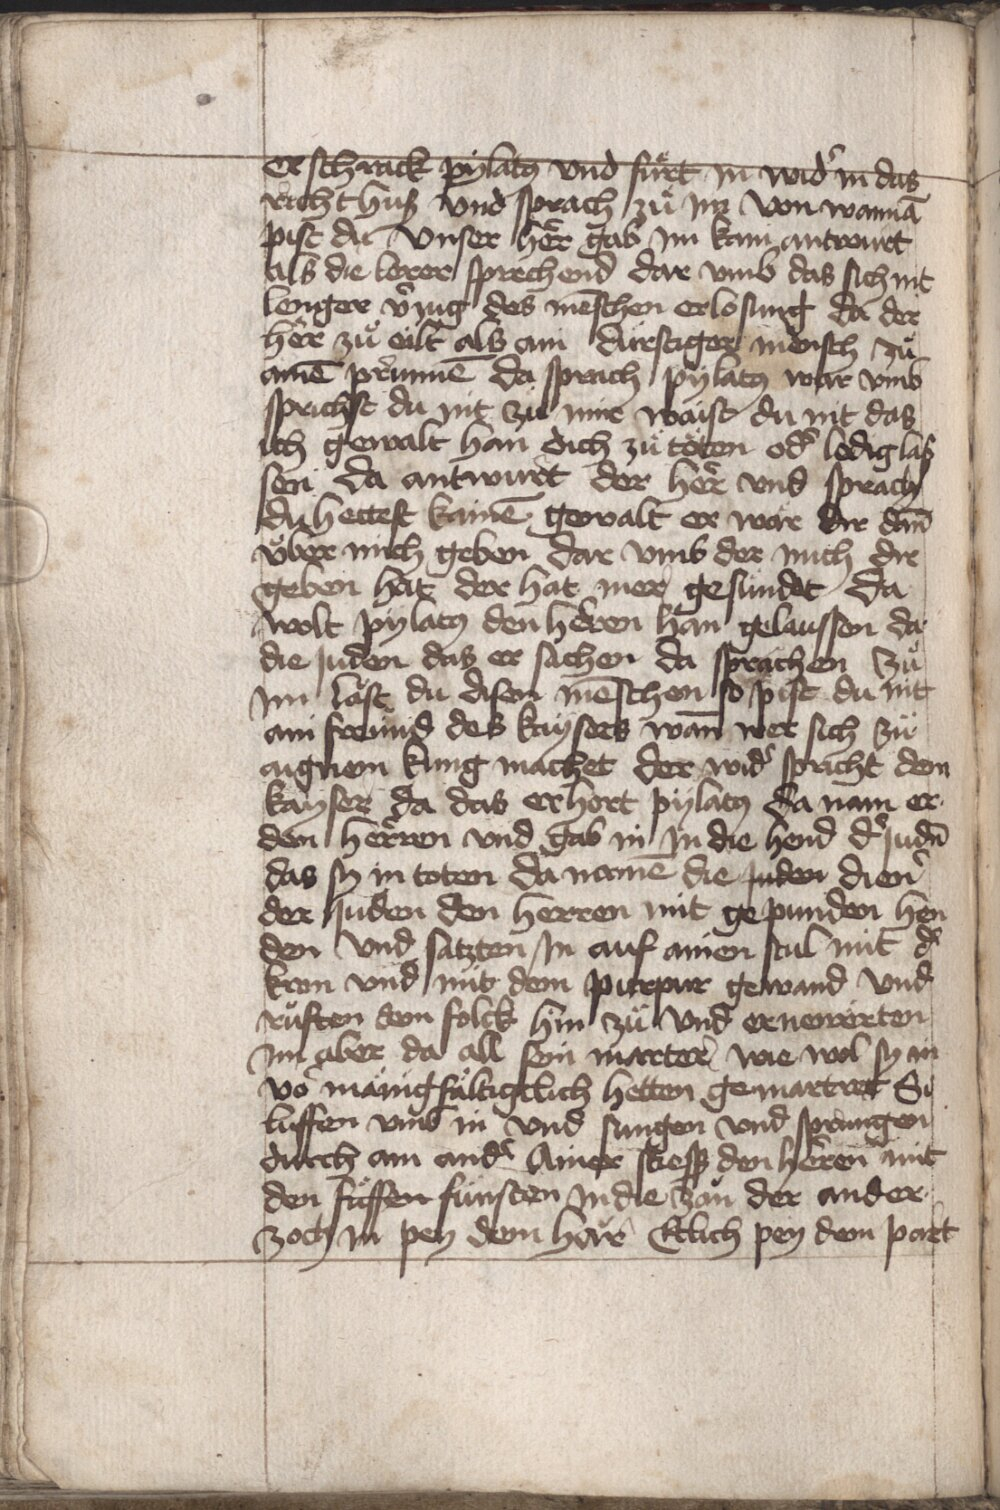 erschrack pylatꝫ vnd fürt in widˀ in das
richthuß vnd sprach zů im von wannā
pist du Vnser her̄ gab im kain antwurt
als die lerer sprechend dar vmb das sich nit
lenger v̂zug des mēschen erlosung da der
her̄ zů eilt als ain dürstiger mensch zů
ainē prunnē Da sprach pylatꝫ war vmb
sprichst du nit zů mir waist du nit das
ich gewalt han dich zů töten odˀ ledig las
sen Da antwurt der her̄ vnd sprach
du hettest kainē gewalt er wär dir dān
v̊ber mich geben dar vmb der mich dir
geben hat der hat mer gesündet Da
wolt pylatꝫ den heren han gelaussen da
die juden das er sachen da sprachen zů
im läst du disen mēschen so pist du nit
ain freünd des kaysers wan̄ wer sich zů
aignem küng machet der widˀ spricht dem
kayser da das erhort pylatꝫ da nam er
den herren vnd gab in in die hend dˀ judn̄
das sy in toten Da namē die juden dienˀ
der juden den herren mit gepunden hen
den vnd satzten in auf ainen stul mit dˀ
kron vnd mit dem purpur gewand vnd
rüften dem folck hin zů vnd ernewerten
im aber da all sein marter wie wol sy in
vō mänigfältigclich hetten gemartret Si
luffen vmb in vnd sungen vnd sprungen
durch ain andˀ Ainer stieß den heren mit
den füssen fünsten in die zön der ander
zoch in pey dem har Etlich pey dem part